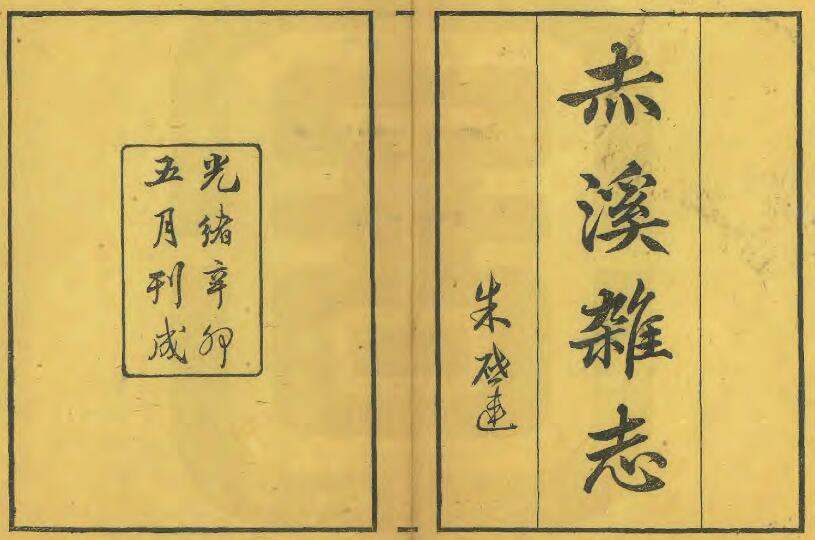 赤溪雜志
朱啟連
光緒辛卯
五月刊成